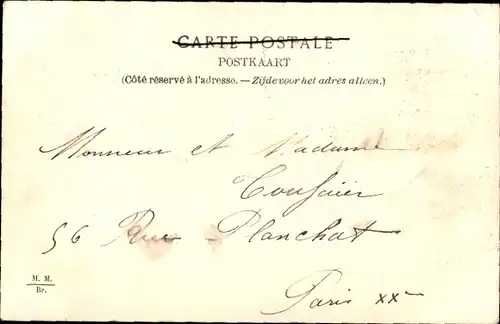 CARTE POSTALE
POSTKAART
(Côté réservé à l'adresse. — Zijde voor het adres alleen.)
Monsieur et Madame
56 Rue Planchat
M. M.
Br.
Paris XXe